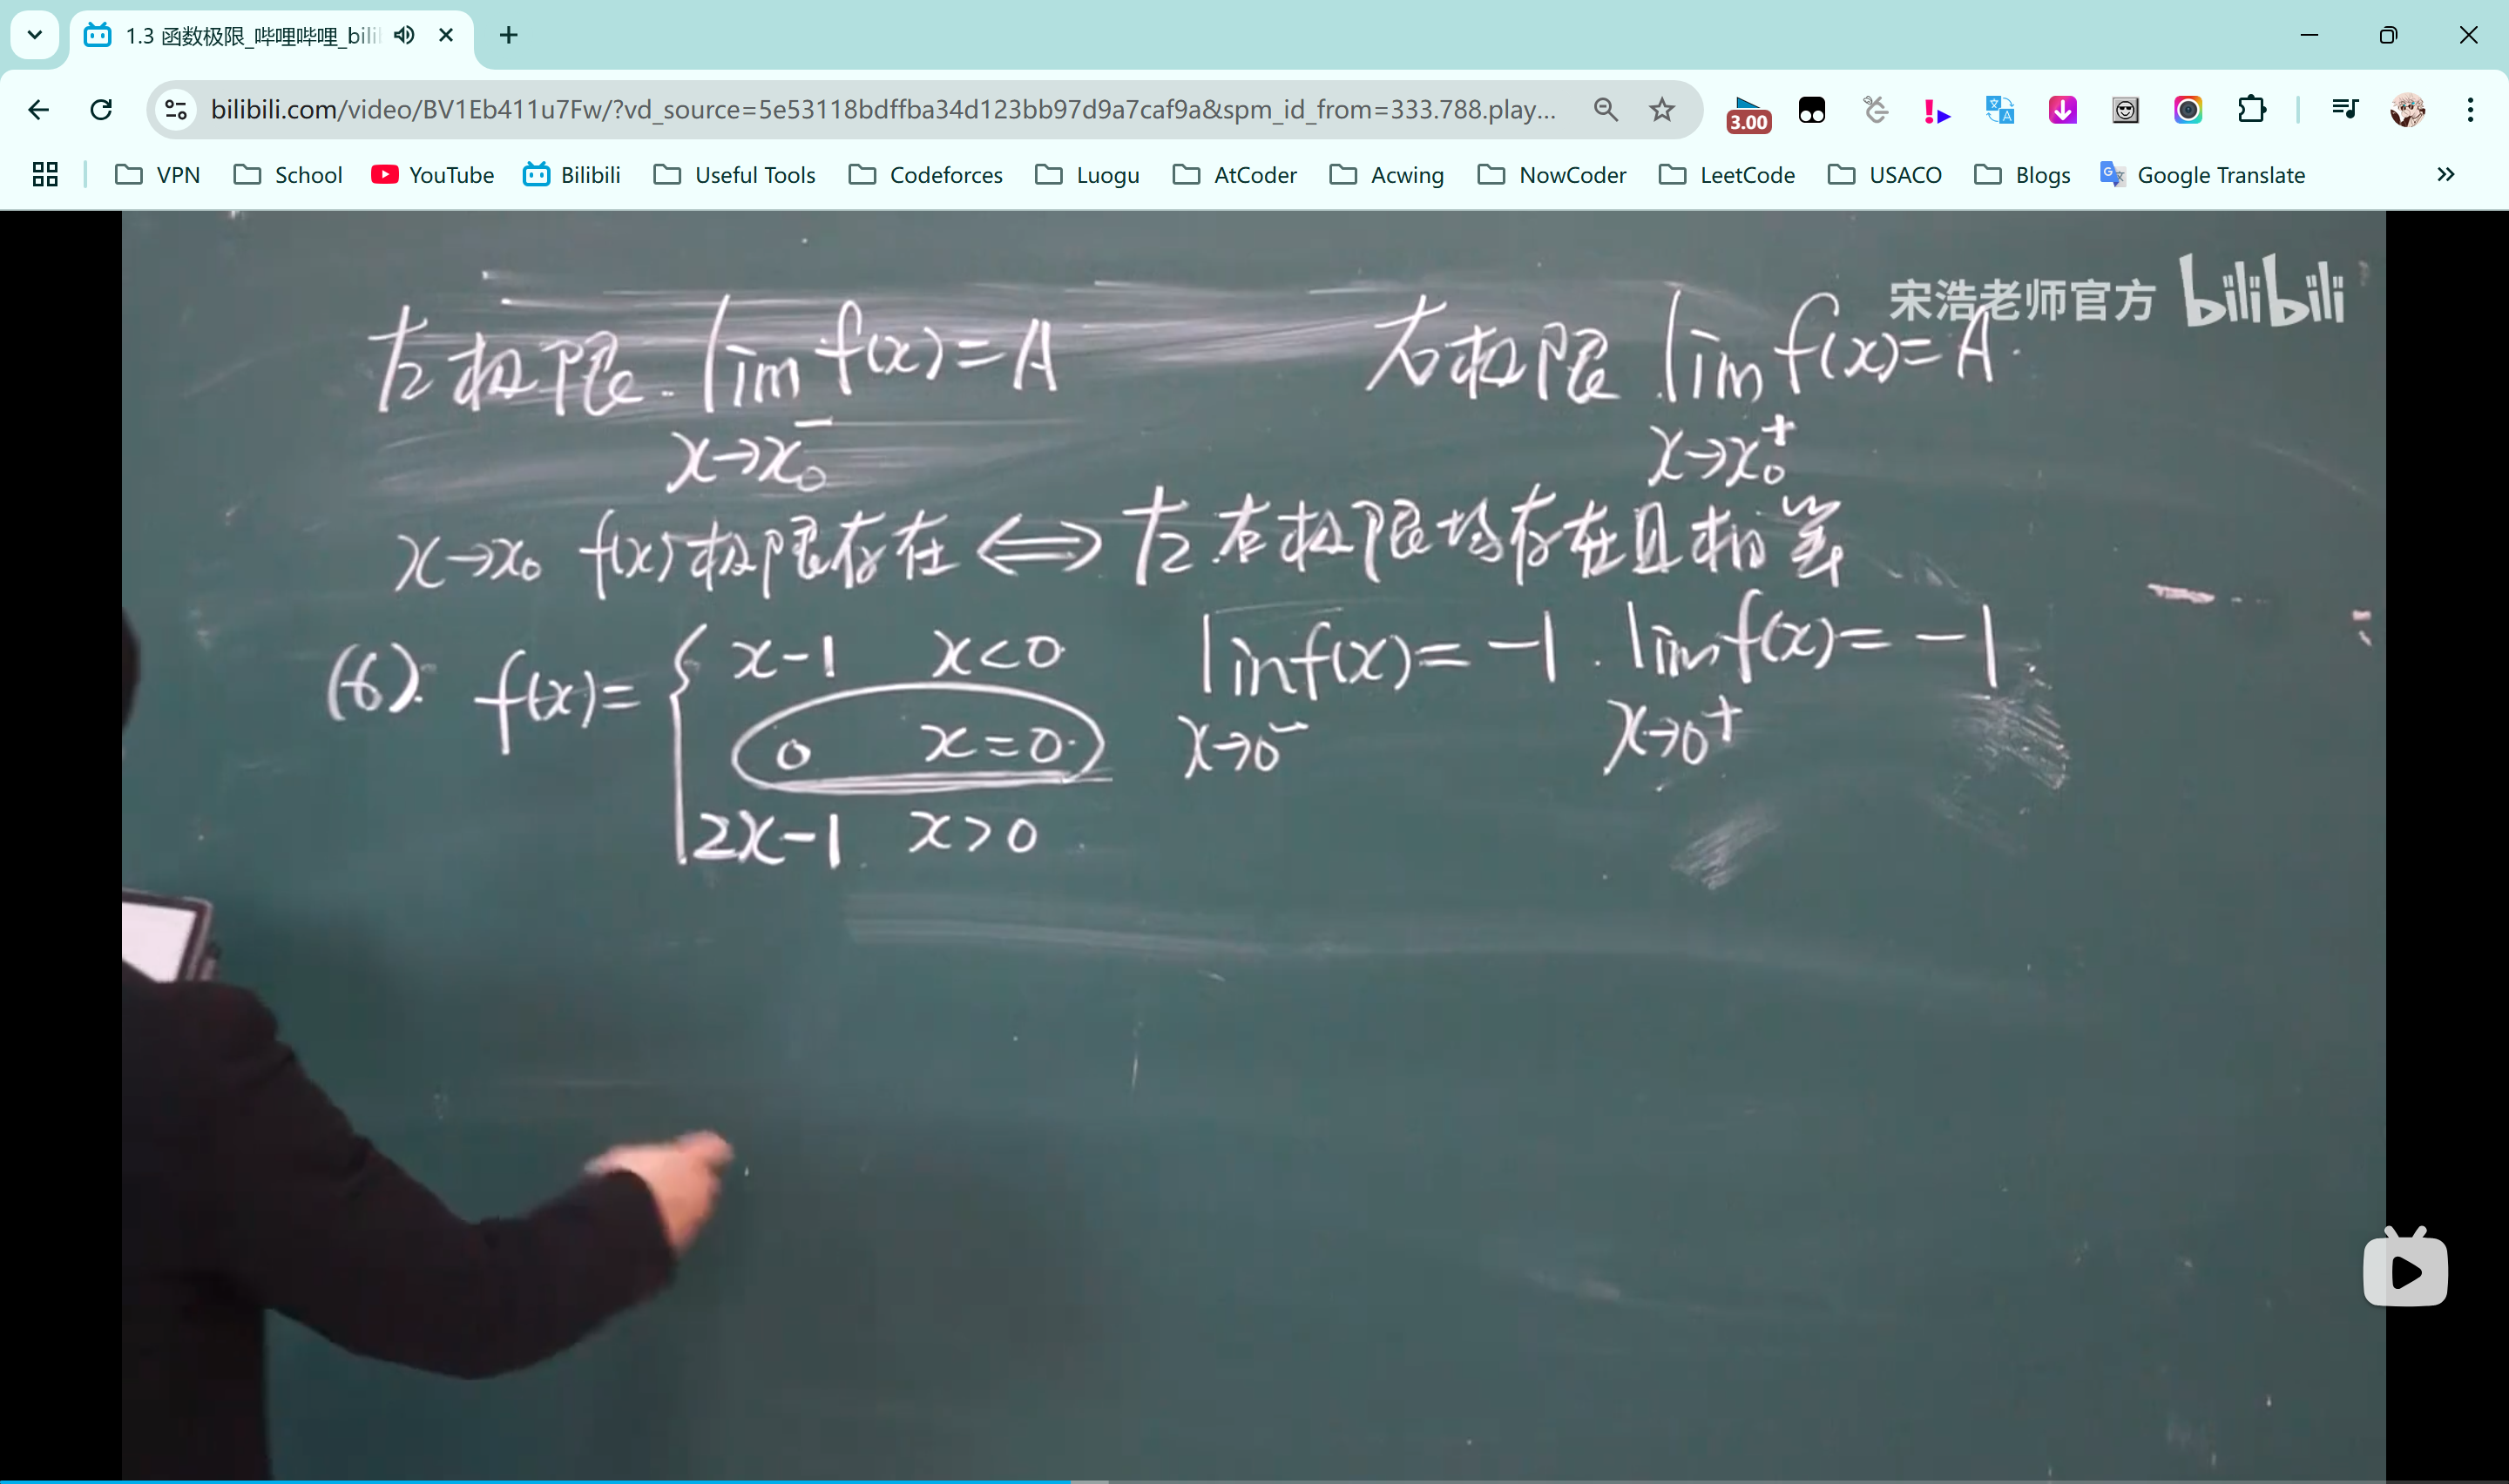 1.3 函数极限_哔哩哔哩_bili
bilibili.com/video/BV1Eb411u7Fw/?vd_source=5e53118bdffba34d123bb97d9a7caf9a&spm_id_from=333.788.play...
3.00
VPN School YouTube Bilibili Useful Tools Codeforces Luogu AtCoder Acwing NowCoder LeetCode USACO Blogs Google Translate
宋浩老师官方 bilibili
左极限. lim f(x)=A 右极限 lim f(x)=A.
x→x₀⁻ x→x₀⁺
x→x₀ f(x)极限存在⟺左.右极限均存在且相等
(6). f(x)= { x-1 x<0 lim f(x)= -1 . lim f(x)= -1.
0 x=0. x→0⁻ x→0⁺
2x-1. x>0